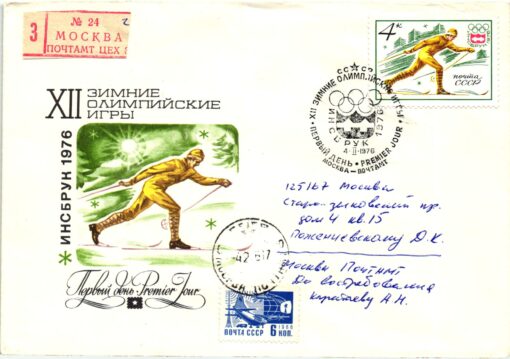 З
№ 24 2
МОСКВА
ПОЧТАМТ ЦЕХ
4к
ПОЧТА
СССР
XII ЗИМНИЕ
ОЛИМПИЙСКИЕ
ИГРЫ
ИНСБРУК 1976
СССР
XII ЗИМНИЕ ОЛИМПИЙСКИЕ ИГРЫ
ИНСБРУК 1976
4-II-1976
ПЕРВЫЙ ДЕНЬ • PREMIER JOUR
МОСКВА – ПОЧТАМТ
125167 Москва
пр.
дом 4 кв. 15
Рожениевскому Д. К.
Москва Почтамт
До востребования
А. Н.
Первый день Premier Jour
1966
ПОЧТА СССР 6 КОП.